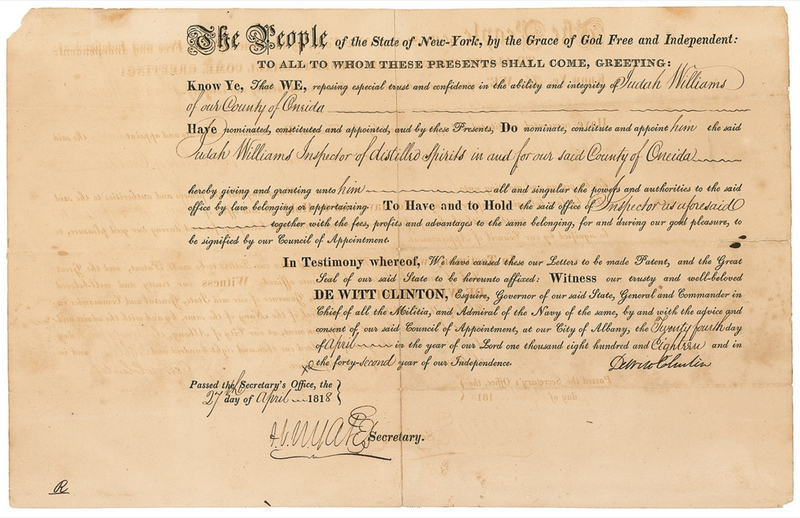 The People of the State of New-York, by the Grace of God Free and Independent:
TO ALL TO WHOM THESE PRESENTS SHALL COME, GREETING:
Know Ye, That WE, reposing especial trust and confidence in the ability and integrity of Judah Williams
of our County of Oneida
Have nominated, constituted and appointed, and by these Presents, Do nominate, constitute and appoint him the said
Judah Williams Inspector of distilled Spirits in and for our said County of Oneida
hereby giving and granting unto him all and singular the powers and authorities to the said
office by law belonging or appertaining. To Have and to Hold the said office of Inspector as aforesaid
together with the fees, profits and advantages to the same belonging, for and during our good pleasure, to
be signified by our Council of Appointment.
In Testimony whereof, We have caused these our Letters to be made Patent, and the Great
Seal of our said State to be hereunto affixed: Witness our trusty and well-beloved
DE WITT CLINTON, Esquire, Governor of our said State, General and Commander in
Chief of all the Militia, and Admiral of the Navy of the same, by and with the advice and
consent of our said Council of Appointment, at our City of Albany, the Twenty fourth day
of April in the year of our Lord one thousand eight hundred and Eighteen and in
the forty-second year of our Independence.
DeWitt Clinton
Passed the Secretary's Office, the
27th day of April 1818
Secretary.
R